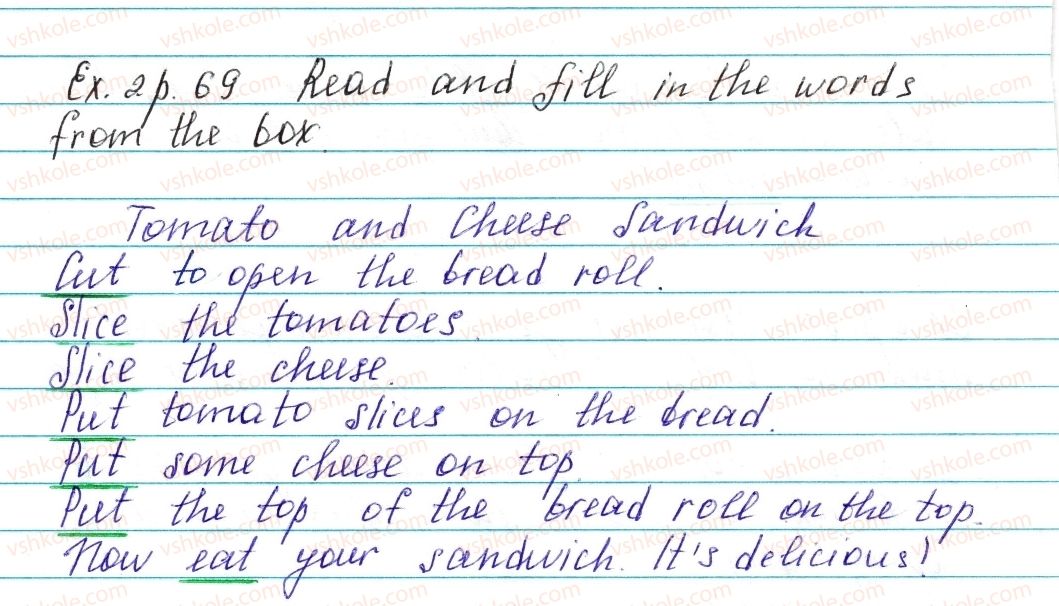 Ex. 2 p. 69 Read and fill in the words
from the box.
Tomato and Cheese Sandwich
Cut to open the bread roll.
Slice the tomatoes.
Slice the cheese.
Put tomato slices on the bread.
Put some cheese on top.
Put the top of the bread roll on the top.
Now eat your sandwich. It's delicious!